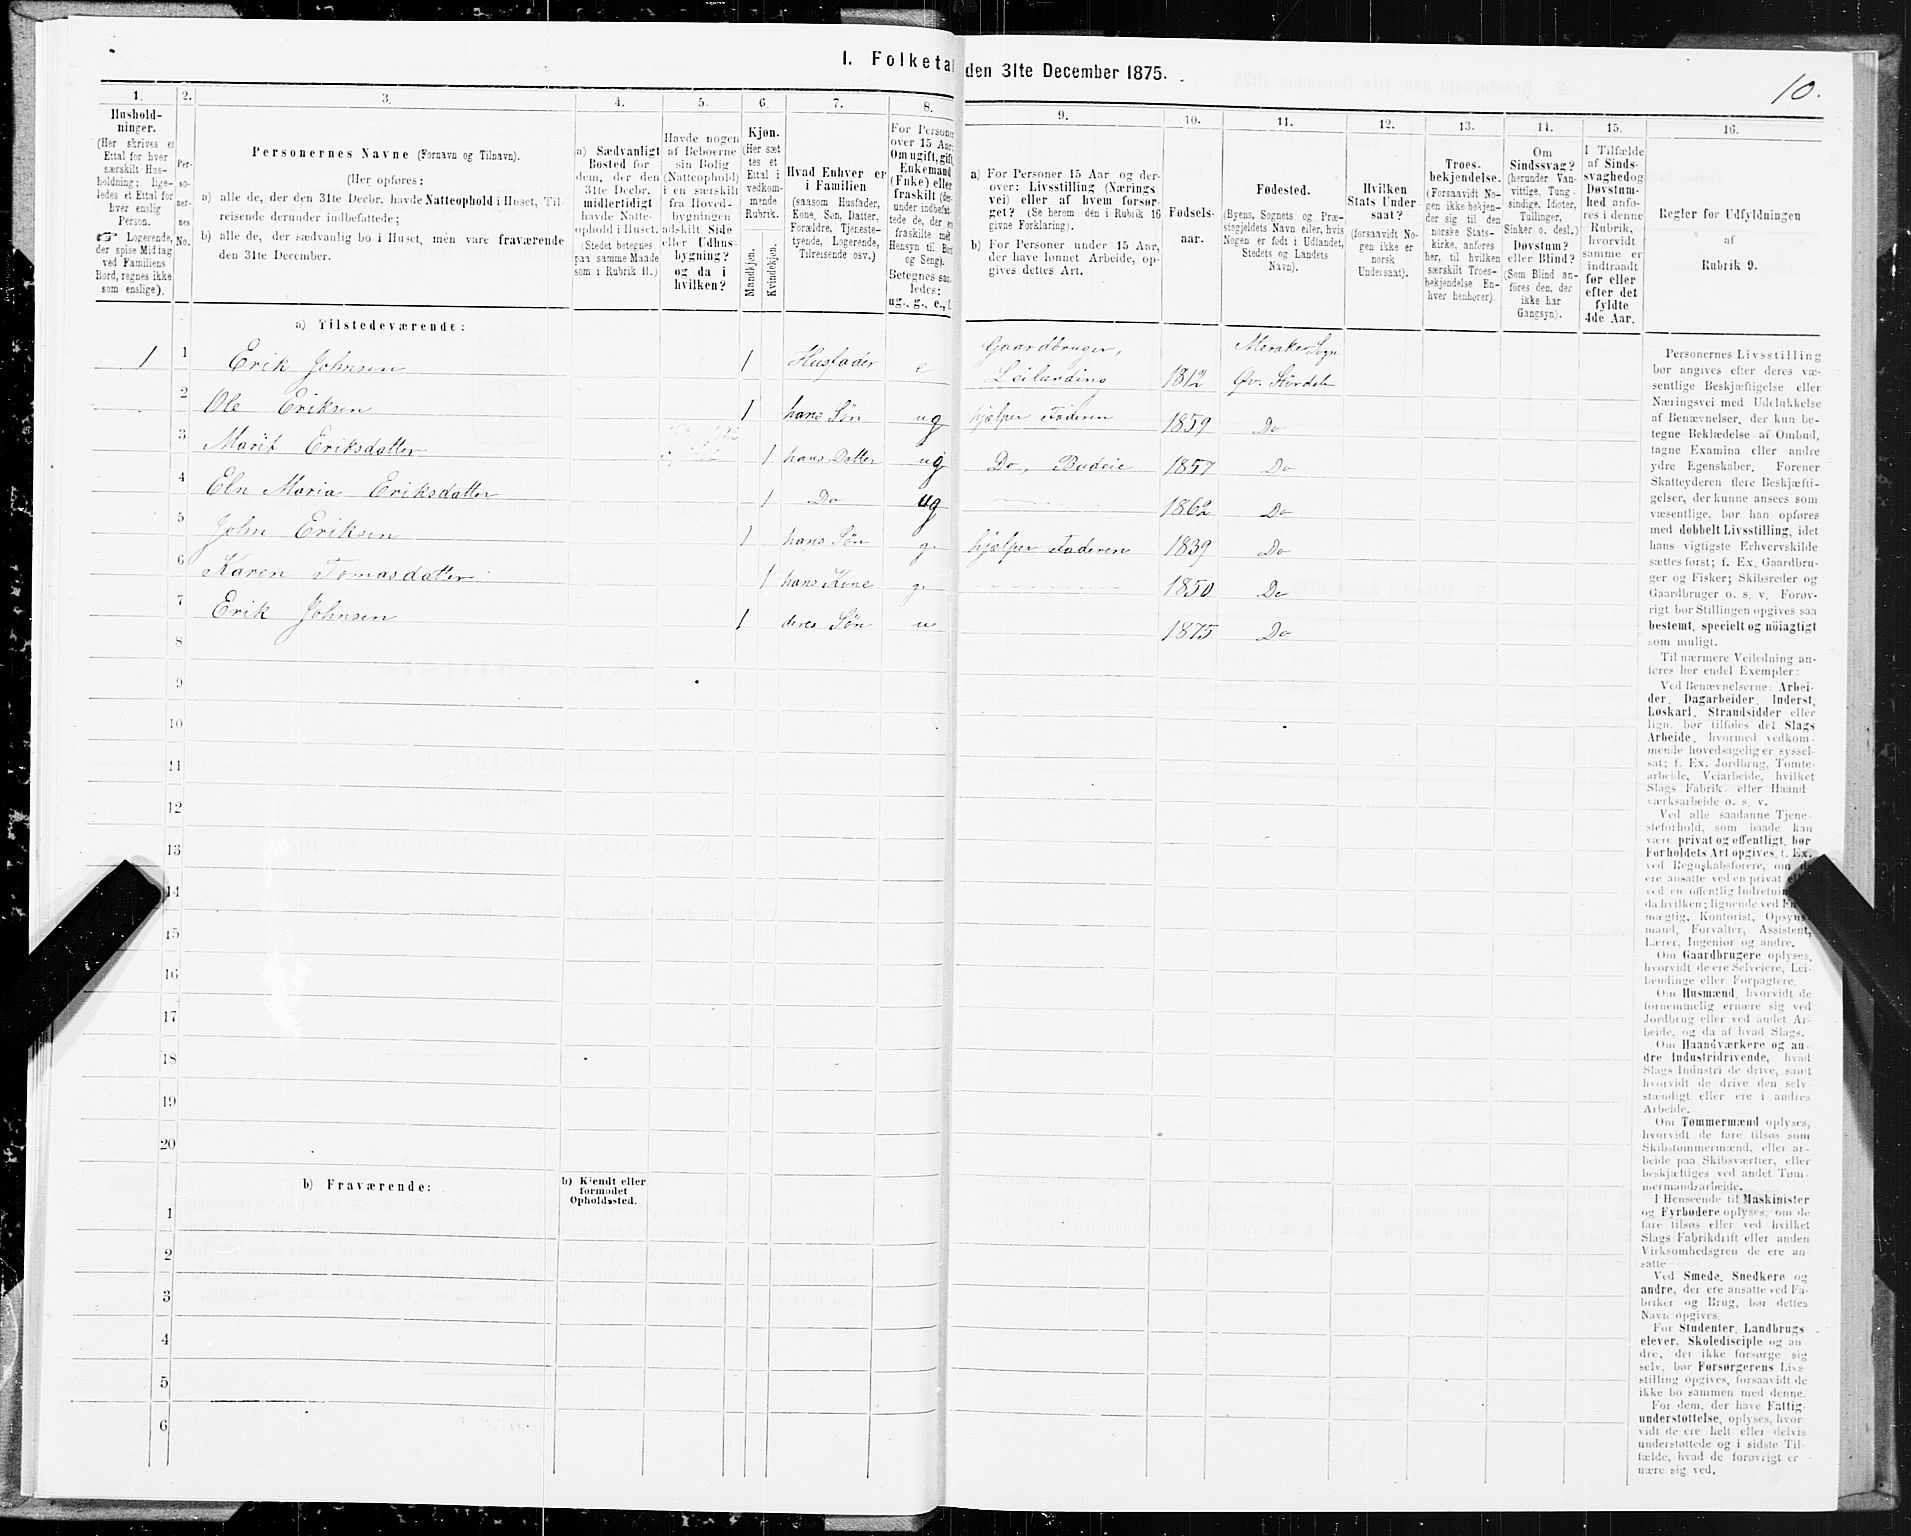 1. Folketal den 31te December 1875.
10.
1.
Hushold-
ninger.
(Her skrives et
Ettal for hver
særskilt Hus-
holdning; lige-
ledes et Ettal for
hver enslig
Person.
☞ Logerende,
der spise Middag
ved Familiens
Bord, regnes ikke
som enslige).
2.
Per-
so-
ner-
nes
No.
3.
Personernes Navne (Fornavn og Tilnavn).
(Her opføres:
a) alle de, der den 31te Decbr. havde Natteophold i Huset, Til-
reisende derunder indbefattede;
b) alle de, der sædvanlig bo i Huset, men vare fraværende
den 31te December.
4.
a) Sædvanligt
Bosted for
dem, der den
31te Decbr.
midlertidigt
havde Natte-
ophold i Huset.
(Stedet betegnes
paa samme Maade
som i Rubrik 11.)
5.
Havde nogen
af Beboerne
sin Bolig
(Natteophold)
i en særskilt
fra Hoved-
bygningen
adskilt Side
eller Udhus-
bygning?
og da i
hvilken?
6.
Kjøn.
(Her sæt
tes et
Ettal i
vedkom-
mende
Rubrik.
Mandkjøn.
Kvindekjøn.
7.
Hvad Enhver er
i Familien
(saasom Husfader,
Kone, Søn, Datter,
Forældre, Tjeneste-
tyende, Logerende,
Tilreisende osv.)
8.
For Personer
over 15 Aar:
Om ugift, gift,
Enkemand
(Enke) eller
fraskilt (der-
under indbefat-
tede de, der ere
fraskilte med
Hensyn til Bord
og Seng).
Betegnes saa-
ledes:
ug., g., e., f.
9.
a) For Personer 15 Aar og der-
over: Livsstilling (Nærings
vei) eller af hvem forsør-
get? (Se herom den i Rubrik 16
givne Forklaring).
b) For Personer under 15 Aar,
der have lønnet Arbeide, op-
gives dettes Art.
10.
Fødsels-
aar.
11.
Fødested.
(Byens, Sognets og Præ-
stegjeldets Navn eller, hvis
Nogen er født i Udlandet,
Stedets og Landets
Navn).
12.
Hvilken
Stats Under-
saat?
(forsaavidt No-
gen ikke er
norsk
Undersaat).
13.
Troes-
bekjendelse.
(Forsaavidt No-
gen ikke bekjen-
der sig til den
norske Stats-
kirke, anføres
her, til hvilken
særskilt Troes-
bekjendelse En-
hver henhører).
14.
Om
Sindssvag?
(herunder Van-
vittige, Tung-
sindige, Idioter,
Tullinger,
Sinker o. desl.)
Døvstum?
eller Blind?
(Som Blind an-
føres den, der
ikke har
Gangsyn).
15.
I Tilfælde
af Sinds-
svaghed og
Døvstum-
hed anfø-
res i denne
Rubrik,
hvorvidt
samme er
indtraadt
før eller
efter det
fyldte
4de Aar.
16.
Regler for Udfyldningen
af
Rubrik 9.
a) Tilstedeværende:
1 1 Erik Johnsen 1 Husfader e Gaardbruger, Leilænding 1812 Meraker Sogn Øv. Stördalen
2 Ole Eriksen 1 hans Søn ug hjælper Faderen 1859 Do
3 Marit Eriksdatter 1 hans Datter ug Do, Budeie 1857 Do
4 Eln Maria Eriksdatter 1 Do ug 1862 Do
5 John Eriksen 1 hans Søn g. hjælper Faderen 1839 Do
6 Karen Tomasdatter 1 hans Kone g. 1850 Do
7 Erik Johnsen 1 deres Søn u 1875 Do
8
9
10
11
12
13
14
15
16
17
18
19
20
b) Fraværende:
b) Kjendt eller
formodet
Opholdssted.
1
2
3
4
5
6
Personernes Livsstilling
bør angives efter deres væ-
sentlige Beskjæftigelse eller
Næringsvei med Udelukkelse
af Benævnelser, der kun be-
tegne Beklædelse af Ombud,
tagne Examina eller andre
ydre Egenskaber. Forener
Skatteyderen flere Beskjæfti-
gelser, der kunne ansees som
væsentlige, bør han opføres
med dobbelt Livsstilling, idet
hans vigtigste Erhvervskilde
sættes først; f. Ex. Gaardbru-
ger og Fisker; Skibsreder og
Gaardbruger o. s. v. Forøv-
rigt bør Stillingen opgives saa
bestemt, specielt og nöiagtigt
som muligt.
Til nærmere Veiledning an-
føres her endel Exempler:
Ved Benævnelserne: Arbei-
der, Dagarbeider, Inderst,
Løskarl, Strandsidder eller
lign. bør tilføies det Slags
Arbeide, hvormed vedkom-
mende hovedsagelig er syssel-
sat; f. Ex. Jordbrug, Tomte-
arbeide, Veiarbeide, hvilket
Slags Fabrik- eller Haand-
værksarbeide o. s. v.
Ved alle saadanne Tjene-
steforhold, som baade kan
være privat og offentligt, bør
Forholdets Art opgives, f. Ex.
ved Regnskabsførere, om de
ere ansatte ved en privat eller
ved en offentlig Indretning og
da hvilken; lignende ved Fuld-
mægtig, Kontorist, Opsyns-
mand, Forvalter, Assistent,
Lærer, Ingeniør og andre.
Om Gaardbrugere oplyses,
hvorvidt de ere Selveiere, Lei-
lændinge eller Forpagtere.
Om Husmænd, hvorvidt de
fornemmelig ernære sig ved
Jordbrug eller ved andet Ar-
beide, og da af hvad Slags.
Om Haandværkere og an-
dre Industridrivende, hvad
Slags Industri de drive, samt
hvorvidt de drive den selv-
stændigt eller ere i andres
Arbeide.
Om Tømmermænd oplyses,
hvorvidt de fare tilsøs som
Skibstømmermænd, eller ar-
beide paa Skibsværfter, eller
beskjæftiges ved andet Tøm-
mermandsarbeide.
I Henseende til Maskinister
og Fyrbødere oplyses, om de
fare tilsøs eller ved hvilket
Slags Fabrikdrift eller anden
Virksomhedsgren de ere an-
satte
Ved Smede, Snedkere og
andre, der ere ansatte ved Fa-
briker og Brug, bør dettes
Navn opgives.
For Studenter, Landbrugs
elever, Skoledisciple og an-
dre, der ikke forsørge sig
selv, bør Forsørgerens Livs-
stilling opgives, forsaavidt de
ikke bo sammen med denne.
For dem, der have Fattig-
understøttelse, oplyses, hvor-
vidt de ere helt eller delvis
understøttede og i sidste Til-
fælde, hvad de forøvrigt er-
nære sig ved.